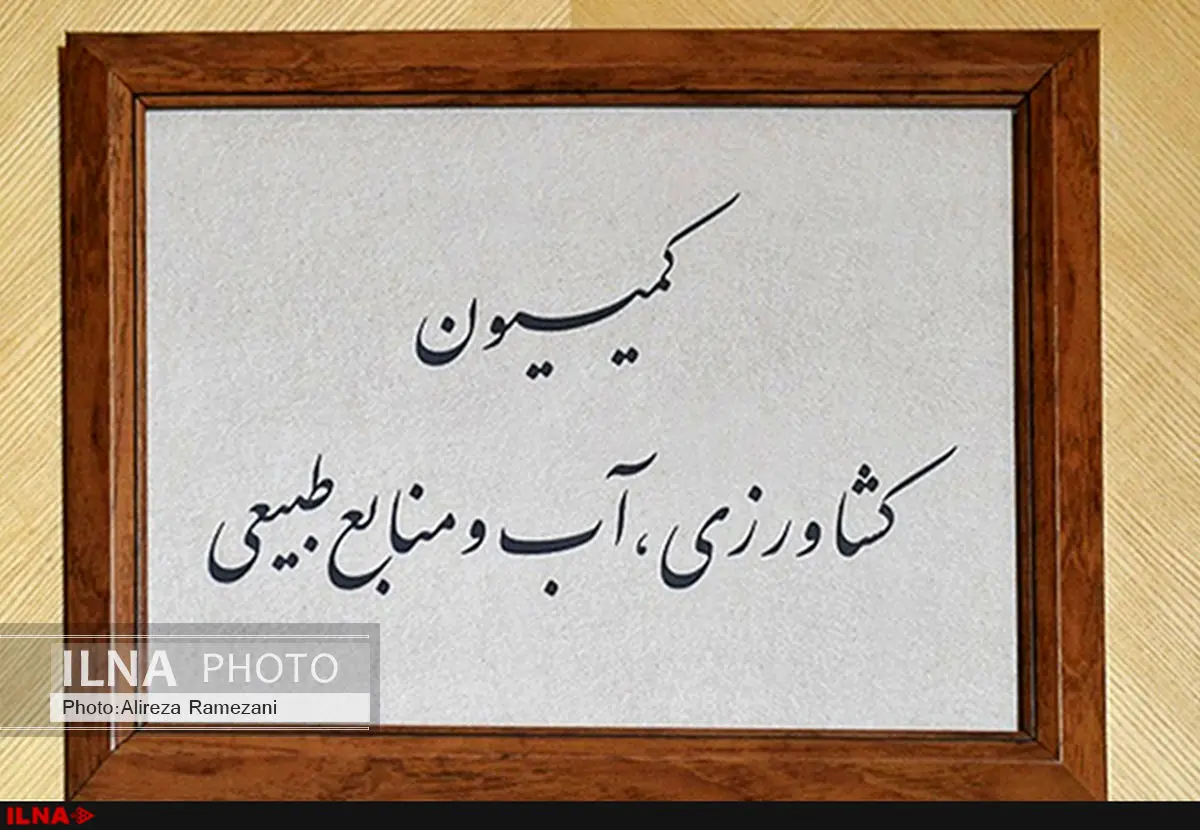 کمیسیون
کشاورزی، آب و منابع طبیعی
ILNA PHOTO
Photo:Alireza Ramezani
ILNA